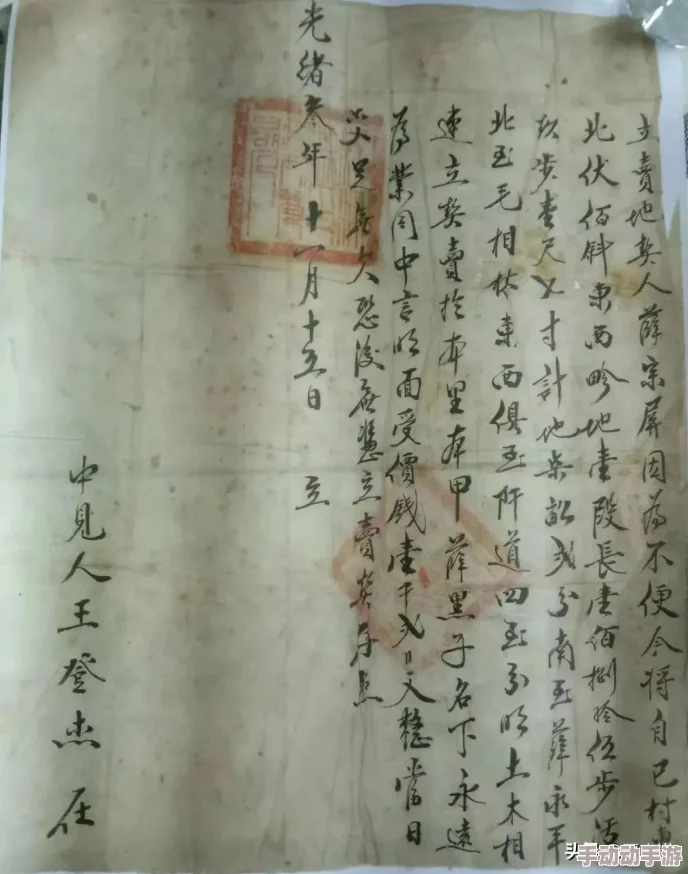 立賣地契人薛宗屏因為不便今將自己村東
北伏佰斜東西畛地壹段長壹佰捌拾伍步活
玖步壹尺乂寸計地柒畝弍分南至薛永平
北至毛相林東西俱至阡道四至分明土木相
連立契賣於本里本甲薛黑子名下永遠
為業同中言明面受價錢壹千弍百文整當日
交足無欠恐後無憑立賣契存照
光緒叁年十一月十五日 立
中見人王登杰在
手动动手游